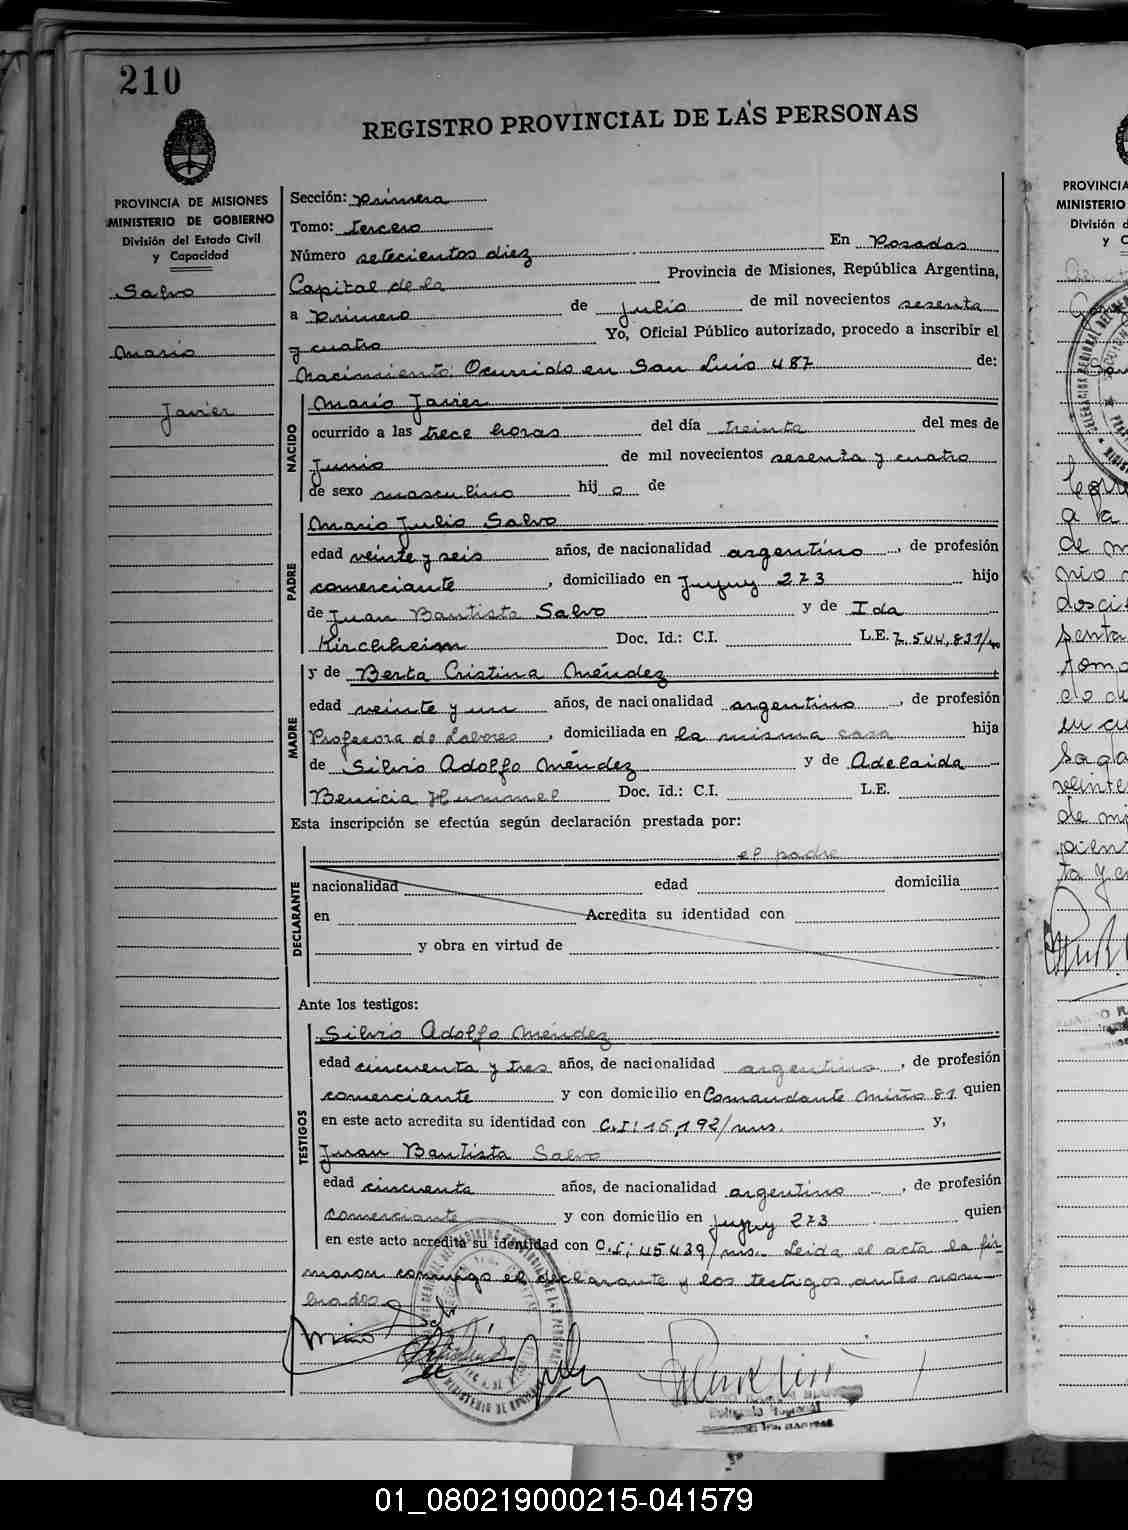 210
REGISTRO PROVINCIAL DE LAS PERSONAS
PROVINCIA DE MISIONES
MINISTERIO DE GOBIERNO
División del Estado Civil
y Capacidad
Salvo
Mario
Javier
Sección: Primera
Tomo: tercero
Número setecientos diez En Posadas
Capital de la Provincia de Misiones, República Argentina,
a Primero de Julio de mil novecientos sesenta
y cuatro Yo, Oficial Público autorizado, procedo a inscribir el
Nacimiento: Ocurrido en San Luis 487 de:
NACIDO
Mario Javier
ocurrido a las trece horas del día treinta del mes de
Junio de mil novecientos sesenta y cuatro
de sexo masculino hij o de
PADRE
Mario Julio Salvo
edad veinte y seis años, de nacionalidad argentino, de profesión
comerciante, domiciliado en Jujuy 273 hijo
de Juan Bautista Salvo y de Ida
Kirchheim Doc. Id.: C.I. L.E. 7.544,831/
MADRE
y de Berta Cristina Méndez
edad veinte y un años, de nacionalidad argentino, de profesión
Profesora de Labores, domiciliada en la misma casa hija
de Silvio Adolfo Méndez y de Adelaida
Benicia Hummel Doc. Id.: C.I. L.E.
Esta inscripción se efectúa según declaración prestada por:
DECLARANTE
el padre
nacionalidad edad domicilia
en Acredita su identidad con
y obra en virtud de
Ante los testigos:
TESTIGOS
Silvio Adolfo Méndez
edad cincuenta y tres años, de nacionalidad argentino, de profesión
comerciante y con domicilio en Comandante Miño 81 quien
en este acto acredita su identidad con C.I: 15,192/mns. y,
Juan Bautista Salvo
edad cincuenta años, de nacionalidad argentino, de profesión
comerciante y con domicilio en Jujuy 273 quien
en este acto acredita su identidad con C.I; 45439/ms. Leida el acta la fir-
maron conmigo el declarante y los testigos antes nom-
brados
PROVINCIA
MINISTERIO
División d
y C
01_080219000215-041579